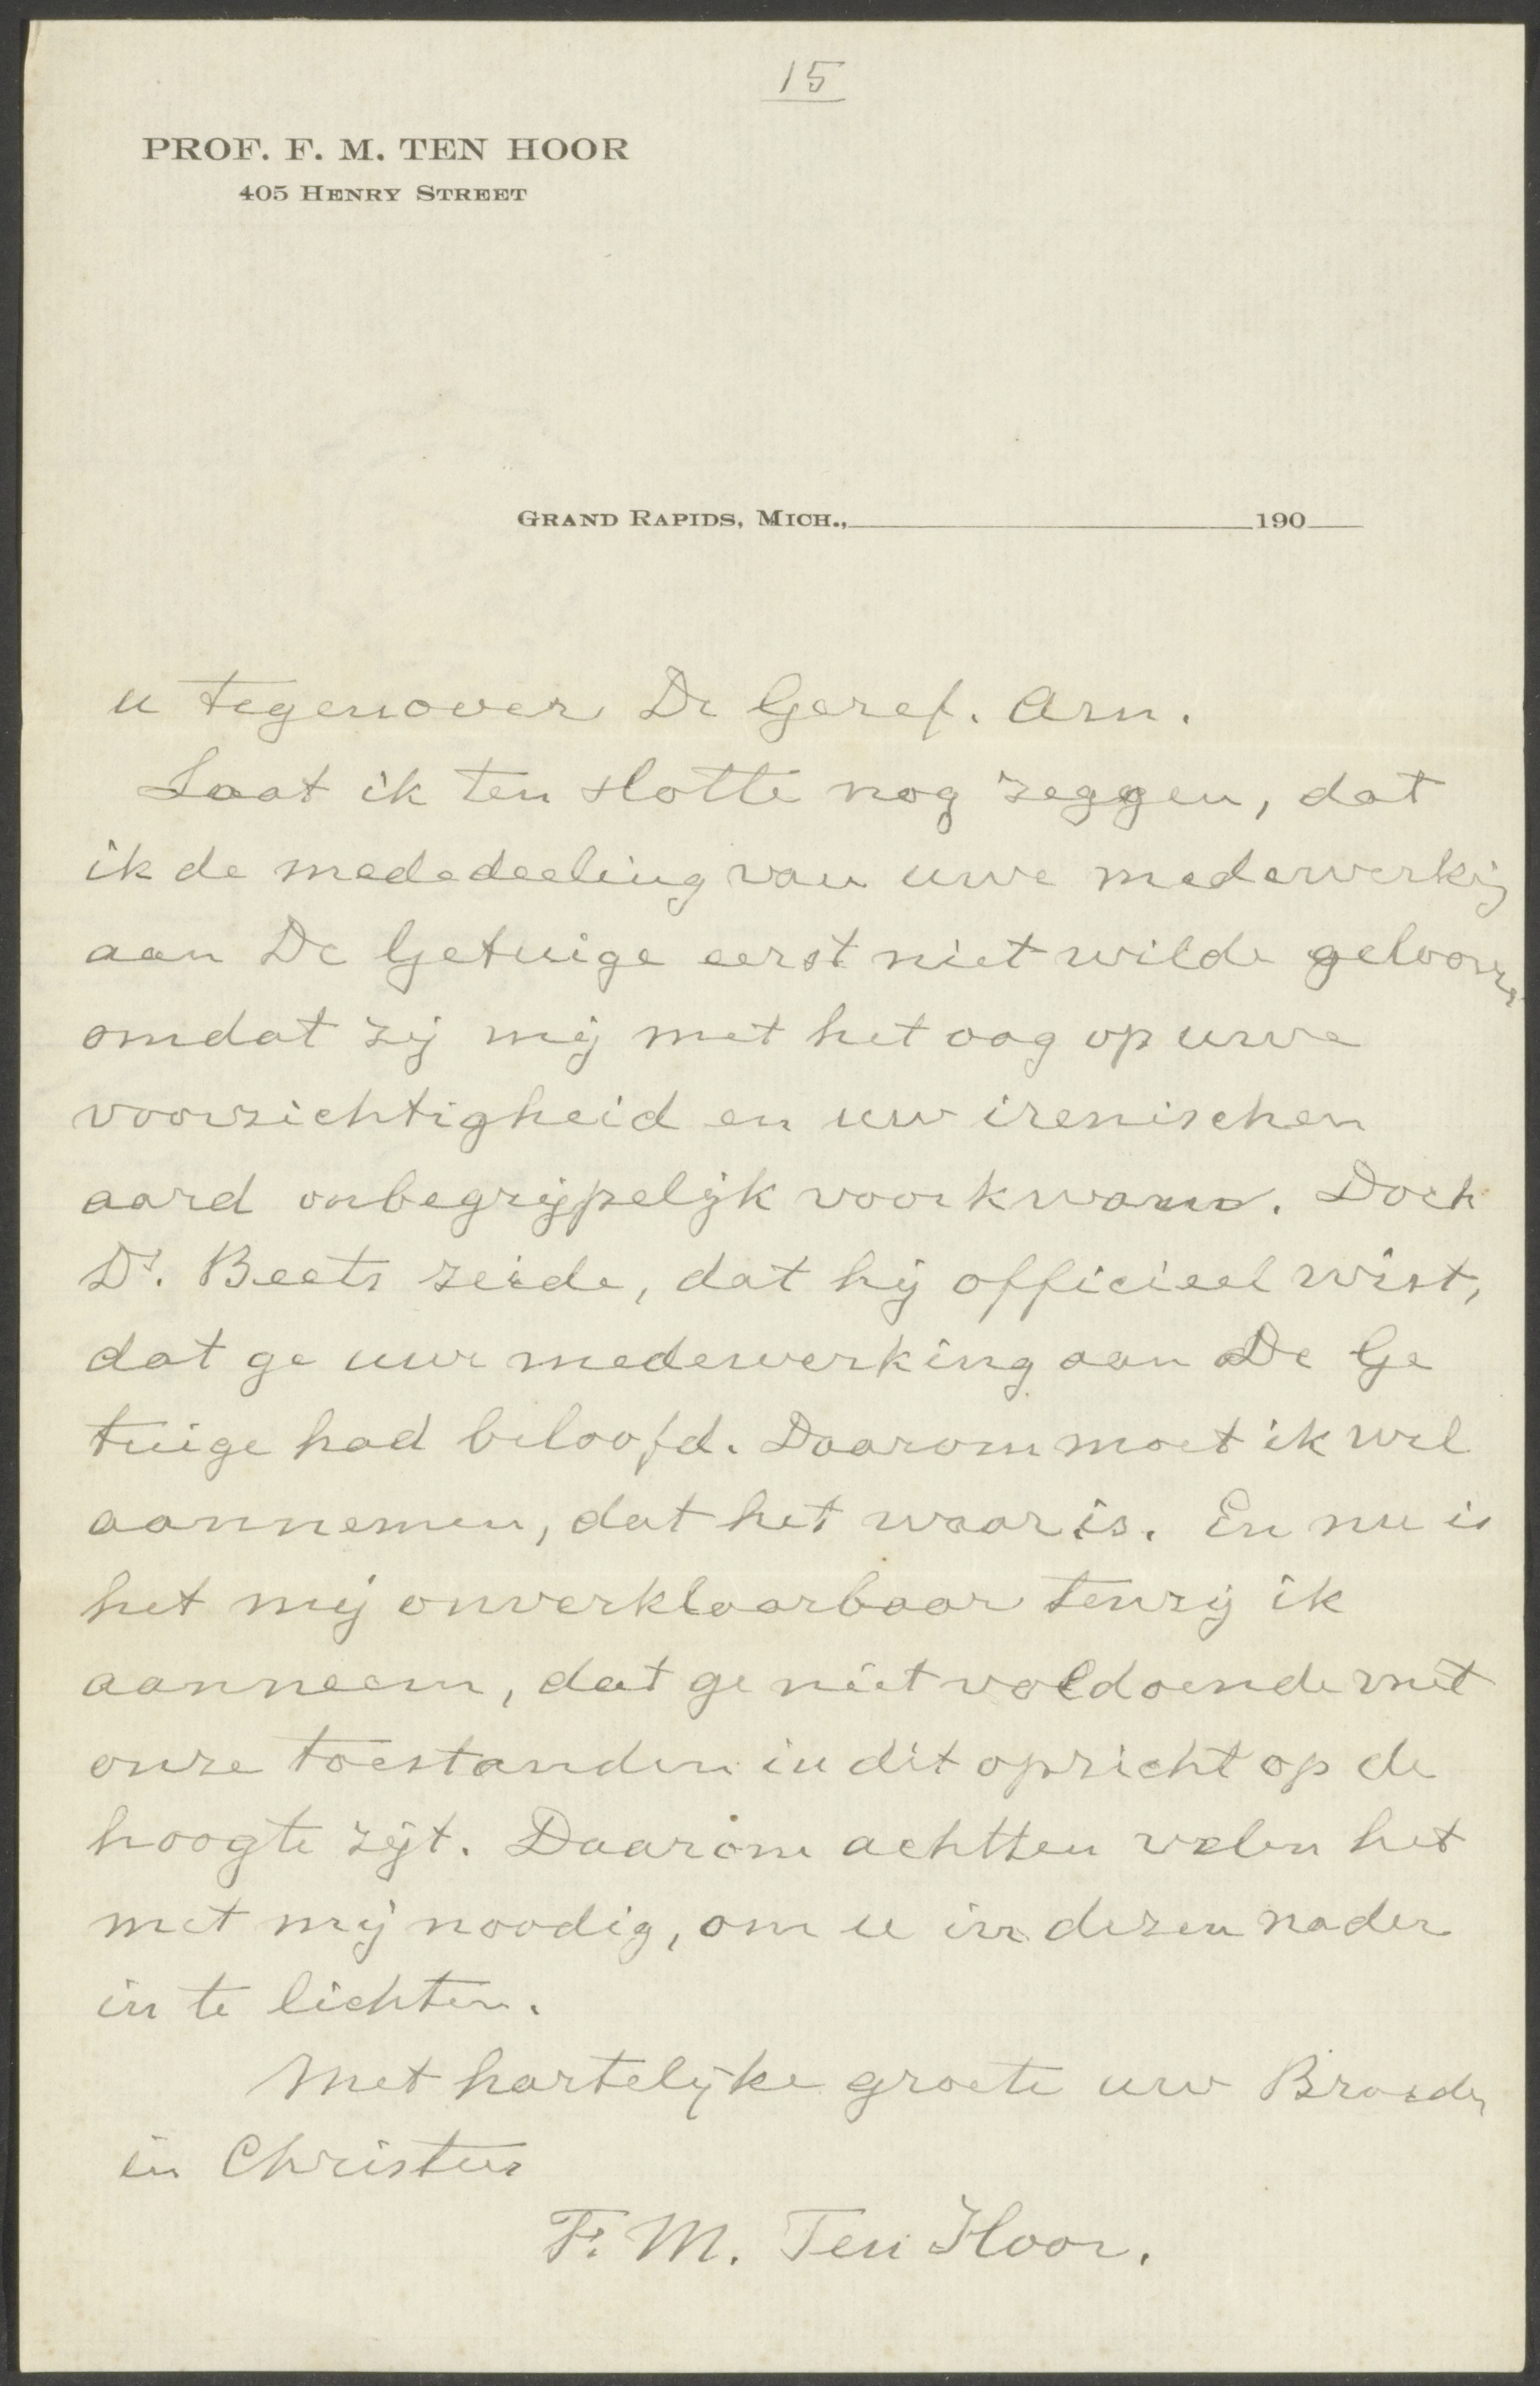 15
PROF. F. M. TEN HOOR
405 HENRY STREET
GRAND RAPIDS, MICH., 190
u tegenover De Geref. Am.
Laat ik ten slotte nog zeggen, dat
ik de mededeeling van uwe medewerking
aan De Getuige eerst niet wilde gelooven
omdat zij mij met het oog op uwe
voorzichtigheid en uw irenischen
aard onbegrijpelijk voorkwam. Doch
Ds. Beets zeide, dat hij officieel wist,
dat ge uwe medewerking aan De Ge
tuige had beloofd. Daarom moet ik wel
aannemen, dat het waar is. En nu is
het mij onverklaarbaar tenzij ik
aanneem, dat ge niet voldoende met
onze toestanden in dit opzicht op de
hoogte zijt. Daarom achtten velen het
met mij noodig, om u in dezen nader
in te lichten.
Met hartelijke groete uw Broeder
in Christus
F. M. Ten Hoor.